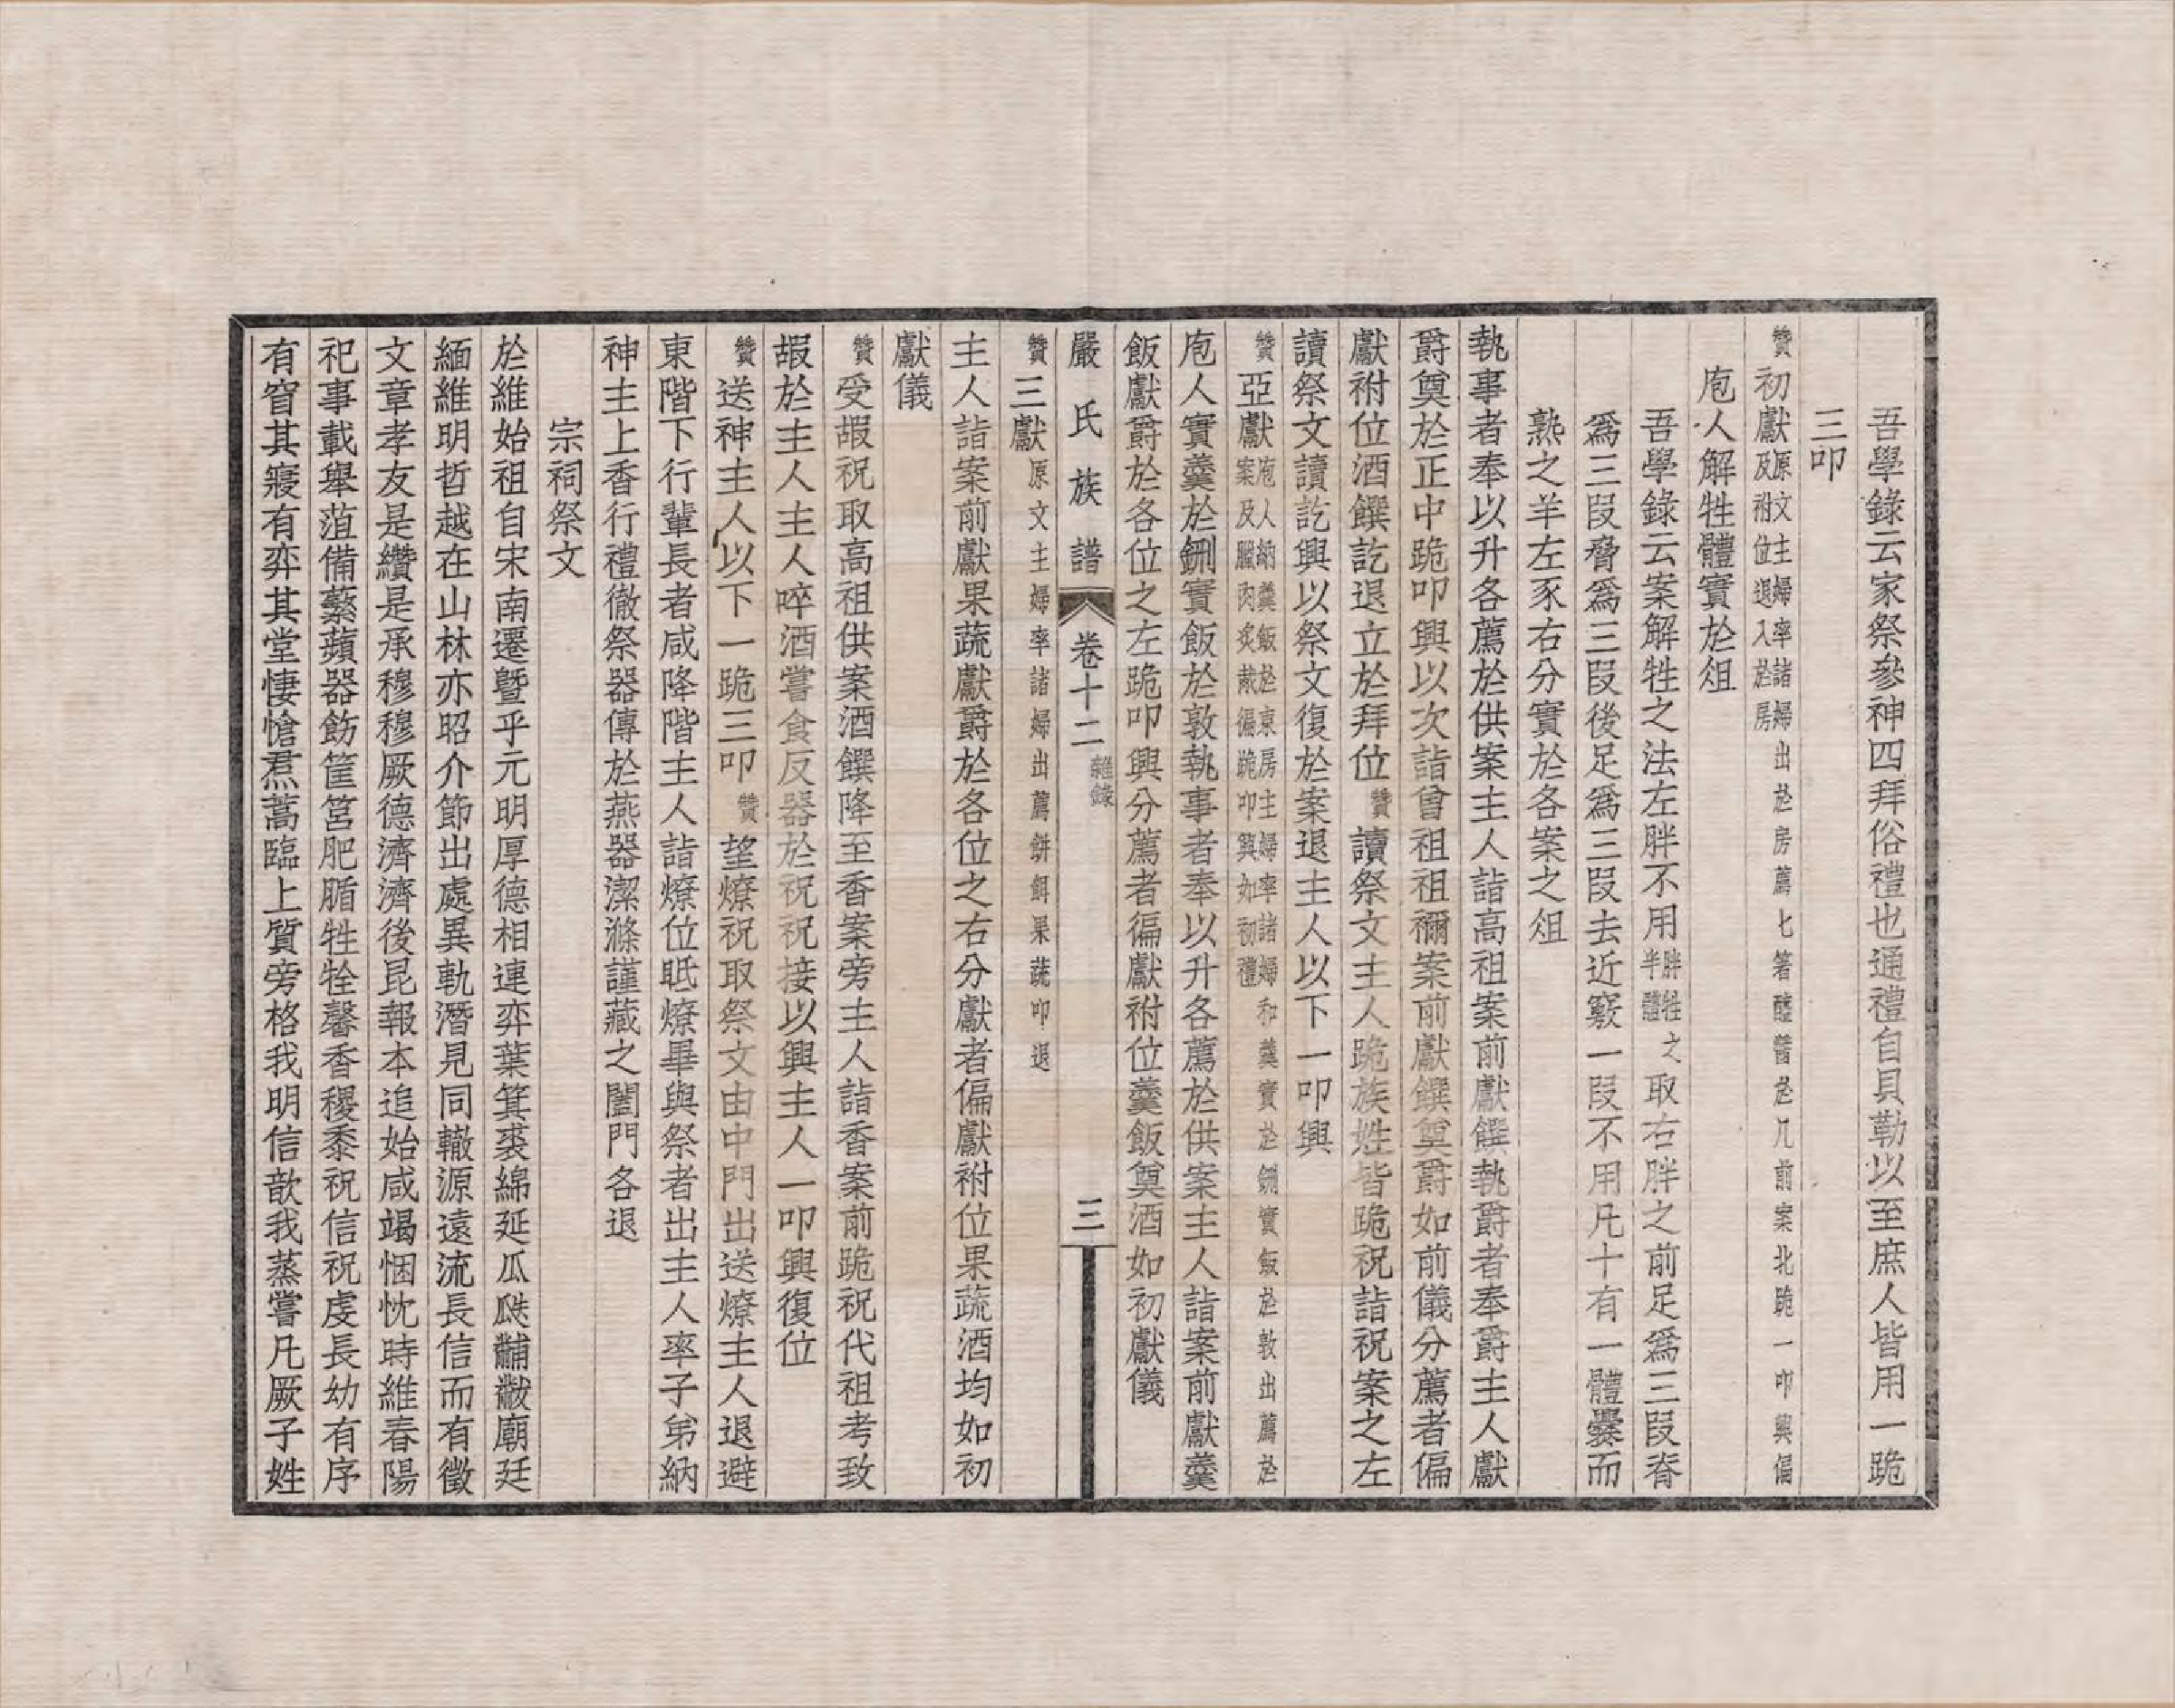 吾學錄云家祭參神四拜俗禮也通禮自貝勒以至庶人皆用一跪
三叩
贊初獻原文主婦率諸婦出於房薦匕箸醯醬於几前案北跪一叩興徧
及祔位退入於房
庖人解牲體實於俎
吾學錄云案解牲之法左胖不用胖牲之半體取右胖之前足爲三段脊
爲三段脅爲三段後足爲三段去近竅一段不用凡十有一體爨而
熟之羊左豕右分實於各案之俎
執事者奉以升各薦於供案主人詣高祖案前獻饌執爵者奉爵主人獻
爵奠於正中跪叩興以次詣曾祖祖禰案前獻饌奠爵如前儀分薦者徧
獻祔位酒饌訖退立於拜位贊讀祭文主人跪族姓皆跪祝詣祝案之左
讀祭文讀訖興以祭文復於案退主人以下一叩興
贊亞獻庖人納羹飯於東房主婦率諸婦和羹實於鉶實飯於敦出薦於
案及臘肉炙胾徧跪叩興如初禮
庖人實羹於鉶實飯於敦執事者奉以升各薦於供案主人詣案前獻羹
飯獻爵於各位之左跪叩興分薦者徧獻祔位羹飯奠酒如初獻儀
嚴氏族譜 卷十二 雜錄 三
贊三獻原文主婦率諸婦出薦餅餌果蔬叩退
主人詣案前獻果蔬獻爵於各位之右分獻者徧獻祔位果蔬酒均如初
獻儀
贊受嘏祝取高祖供案酒饌降至香案旁主人詣香案前跪祝代祖考致
嘏於主人主人啐酒嘗食反器於祝祝接以興主人一叩興復位
贊送神主人以下一跪三叩贊望燎祝取祭文由中門出送燎主人退避
東階下行輩長者咸降階主人詣燎位眡燎畢與祭者出主人率子弟納
神主上香行禮徹祭器傳於燕器潔滌謹藏之闔門各退
宗祠祭文
於維始祖自宋南遷曁乎元明厚德相連弈葉箕裘綿延瓜瓞黼黻廟廷
緬維明哲越在山林亦昭介節出處異軌潛見同轍源遠流長信而有徵
文章孝友是纘是承穆穆厥德濟濟後昆報本追始咸竭悃忱時維春陽
祀事載舉菹備蘩蘋器飭筐筥肥腯牲牷馨香稷黍祝信祝虔長幼有序
有窅其寢有弈其堂悽愴焄蒿臨上質旁格我明信歆我蒸嘗凡厥子姓